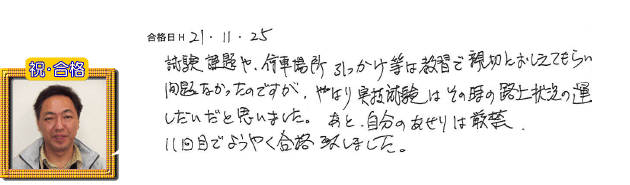 祝・合格
合格日 H 21・11・25
試験課題や、停車場所 引っかけ等は教習で親切におしえてもらい
問題なかったのですが、やはり実技試験はその時の路上状況の運
しだいだと思いました。あと、自分のあせりは厳禁。
11回目でようやく合格致しました。